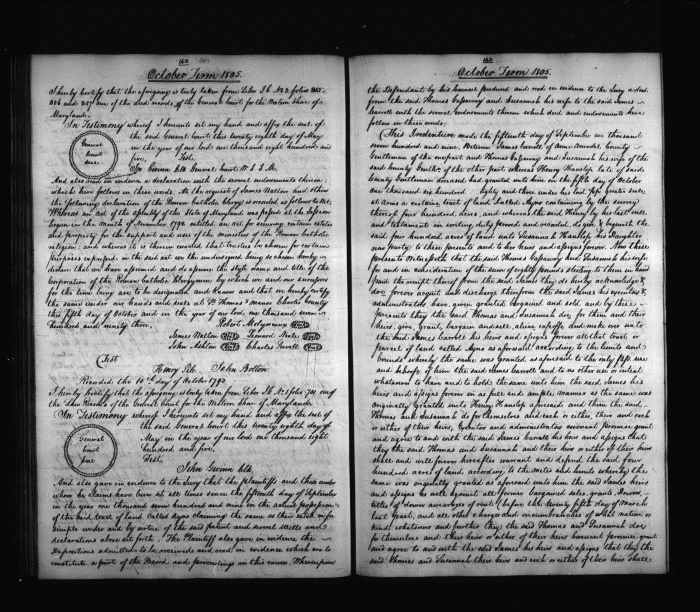 162
October Term 1805.
I hereby certify that the aforegoing is truly taken from Liber J G No 2 folios 255
256 and 257 one of the Land records of the General Court for the Western Shore of
Maryland.
In Testimony whereof I hereunto set my hand and affix the seal of
the said General Court this twenty eighth day of May
in the year of our Lord one thousand eight hundred and
five, Test.
General
Court
Seal
Jno Gwinn Clk General Court W. S. Md.
And also read in evidence a declaration with the several endorsements thereon
which here follows in these words. At the request of James Walton and others
the following declaration of the Roman Catholic Clergy is recorded as follows to wit:
Whereas an act of the assembly of the State of Maryland was passed at the session
begun in the month of November 1792 entitled an act for securing certain estates
and property for the support and uses of the ministers of the Roman Catholic
religion; and whereas it is therein enacted that trustees be chosen for certain
purposes expressed in the said act we the undersigned being so chosen hereby
declare that we have assumed and do assume the style name and title of the
Corporation of the Roman Catholic Clergymen by which we and our successors
for the time being are to be designated and known and that we hereby certify
the same under our hands and seals at St Thomas's manor Charles County
this fifth day of October and in the year of our Lord one thousand seven
hundred and ninety three,
Robert Molyneux Seal
James Walton Seal Leonard Neale Seal
John Ashton Seal Charles Sewall Seal
Test
Henry Pile John Bolton
Recorded the 10th day of October 1793
I hereby certify that the aforegoing is truly taken from Liber J G No 2 folio 701 one of
the Land Records of the General Court for the Western Shore of Maryland.
In Testimony whereof I hereunto set my hand and affix the seal of
the said General Court this twenty eighth day of
May in the year of our Lord one thousand eight
hundred and five.
General
Court
Seal
Test,
John Gwinn Clk
And also gave in evidence to the Jury that the Plaintiffs and those under
whom he claims have been at all times since the fifteenth day of September
in the year one thousand seven hundred and nine in the actual possession
of the said tract of land called Ayno claiming the same as their estate in fee
simple under and by virtue of the said patent and several Wills and
declarations above set forth. The Plaintiff also gave in evidence the
Depositions admitted to be received and read in evidence which are to
constitute a part of the Record and proceedings in this cause. Whereupon
163
October Term 1805.
the Defendant by his Counsel produced and read in evidence to the Jury a deed
from the said Thomas Gassaway and Susannah his wife to the said James
Carroll with the several endorsements thereon which deed and endorsements here
follow in these words.
This Indenture made the fifteenth day of September in thousand
seven hundred and nine, Between James Carroll of Ann arundel County
Gentleman of the one part and Thomas Gassaway and Susannah his wife of the
said County Gentlm of the other part whereas Henry Hanslap late of said
County Gentleman deceased had granted unto him on the fifth day of October
one thousand six hundred eighty and three under his Lord ships greater seal
at arms a certain tract of land called Ayno containing by the survey
thereof four hundred acres, and whereas the said Henry by his last will
and testament in writing duly proved and recorded, did give & bequeath the
said four hundred acres of land unto Susannah Hanslap his Daughter
now party to these presents and to her heirs and assigns forever Now these
presents Witnesseth that the said Thomas Gassaway and Susannah his wife
for and in consideration of the sum of eighty pounds sterling to them in hand
paid the receipt thereof from the said James they do hereby acknowledge &
doe forever acquit and discharge therefrom the said James his executors &
administrators, have given granted bargained and sold and by these
presents they the said Thomas and Susannah doe for them and their
heirs, give, grant, bargain and sell, alien enfeoffe and make over unto
the said James Carroll his heirs and assigns forever all that tract or
parcel of land called Ayno as aforesaid according to the limits and
bounds whereby the same was granted as aforesaid to the only proper use
and behoofe of him the said James Carroll and to no other use or intent
whatsoever To have and to hold the same unto him the said James his
heirs and assigns forever in as full and ample manner as the same was
originally granted unto Henry Hanslap aforesaid and them the said
Thomas and Susannah do for themselves and each or either, their and each
or either of their heirs, Executors and administrators covenant promise grant
and agree to and with the said James Carroll his heirs and assigns that
they the said Thomas and Susannah and their heirs or either of their heirs
shall and will forever hereafter warrant and defend the said four
hundred acres of land according to the metes and limits whereby the
same was originally granted as aforesaid unto him the said James his heirs
and assigns as well against all former bargained sales, grants, Dowers,
titles of dower incumbrances of rent (before the twenty fifth day of March
last past, and all other charges and incumbrances of what nature or
kind whatsoever and further they the said Thomas and Susannah doe
for themselves and their heirs or either of their heirs covenant promise grant
and agree to and with the said James his heirs and assigns that they the
said Thomas and Susannah their heirs and each or either of their heirs shall